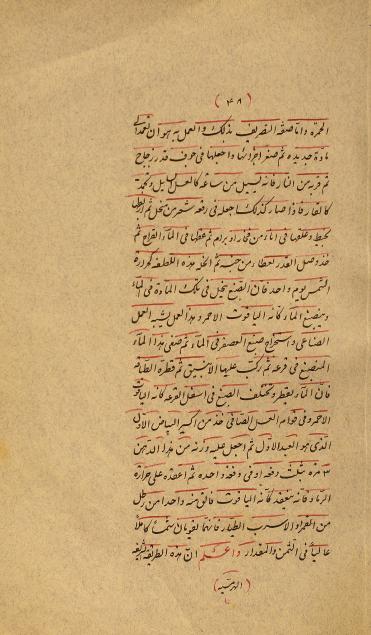 (٤٨)
الحمرة واما صفة التصريف بذلك والعمل به هو ان تعمد الى
مادة جديده ثم صغر اجزائها واجعلها فى جوف قدر زجاج
ثم قربه من النار فانه يسيل من ساعته كالعسل السايل وتجمد
كالقار فاذا صار كذلك اجعله فى رقعه شعر من نخل ثم اربطها
بخيط وعلقها فى اناء من فخار او برام ثم غطها فى الماء القراح ثم
خذ وصل القدر بغطاء من جنسه ثم الحق هذه اللطيفه كحرارة
الشمس يوم واحد فان الصبغ ينحل فى تلك المادة فى الماء
وينصبغ الماء كانه الياقوت الاحمر وهذا العمل يشبه العمل
الصناعى واستخراج صبغ العصفر فى الماء ثم صفى هذا الماء
المنصبغ فى قرعه ثم ركب عليها الانبيق ثم قطره القطاره
فان الماء يقطر ويتخلف الصبغ فى اسفل القرعه كانه الياقوت
الاحمر وفى قوامه العسل الصافى خذ من اكسير البياض الاول
الذى هو العبد الاول ثم اجعل عليه وزنه من هذا الدهن
٣ مره بثلث دفعه او فى دفعه واحده ثم اعقده على حرارة
الرماد فانه ينعقد كانه الياقوت فالق منه واحدا من رطل
من القمر او الاسرب الطيار فانهما يقومان شمسا كاملا
عاليا فى الثمن والمقدار واعلم ان هذه الطريقه الشريفه
(الهرمسيه)